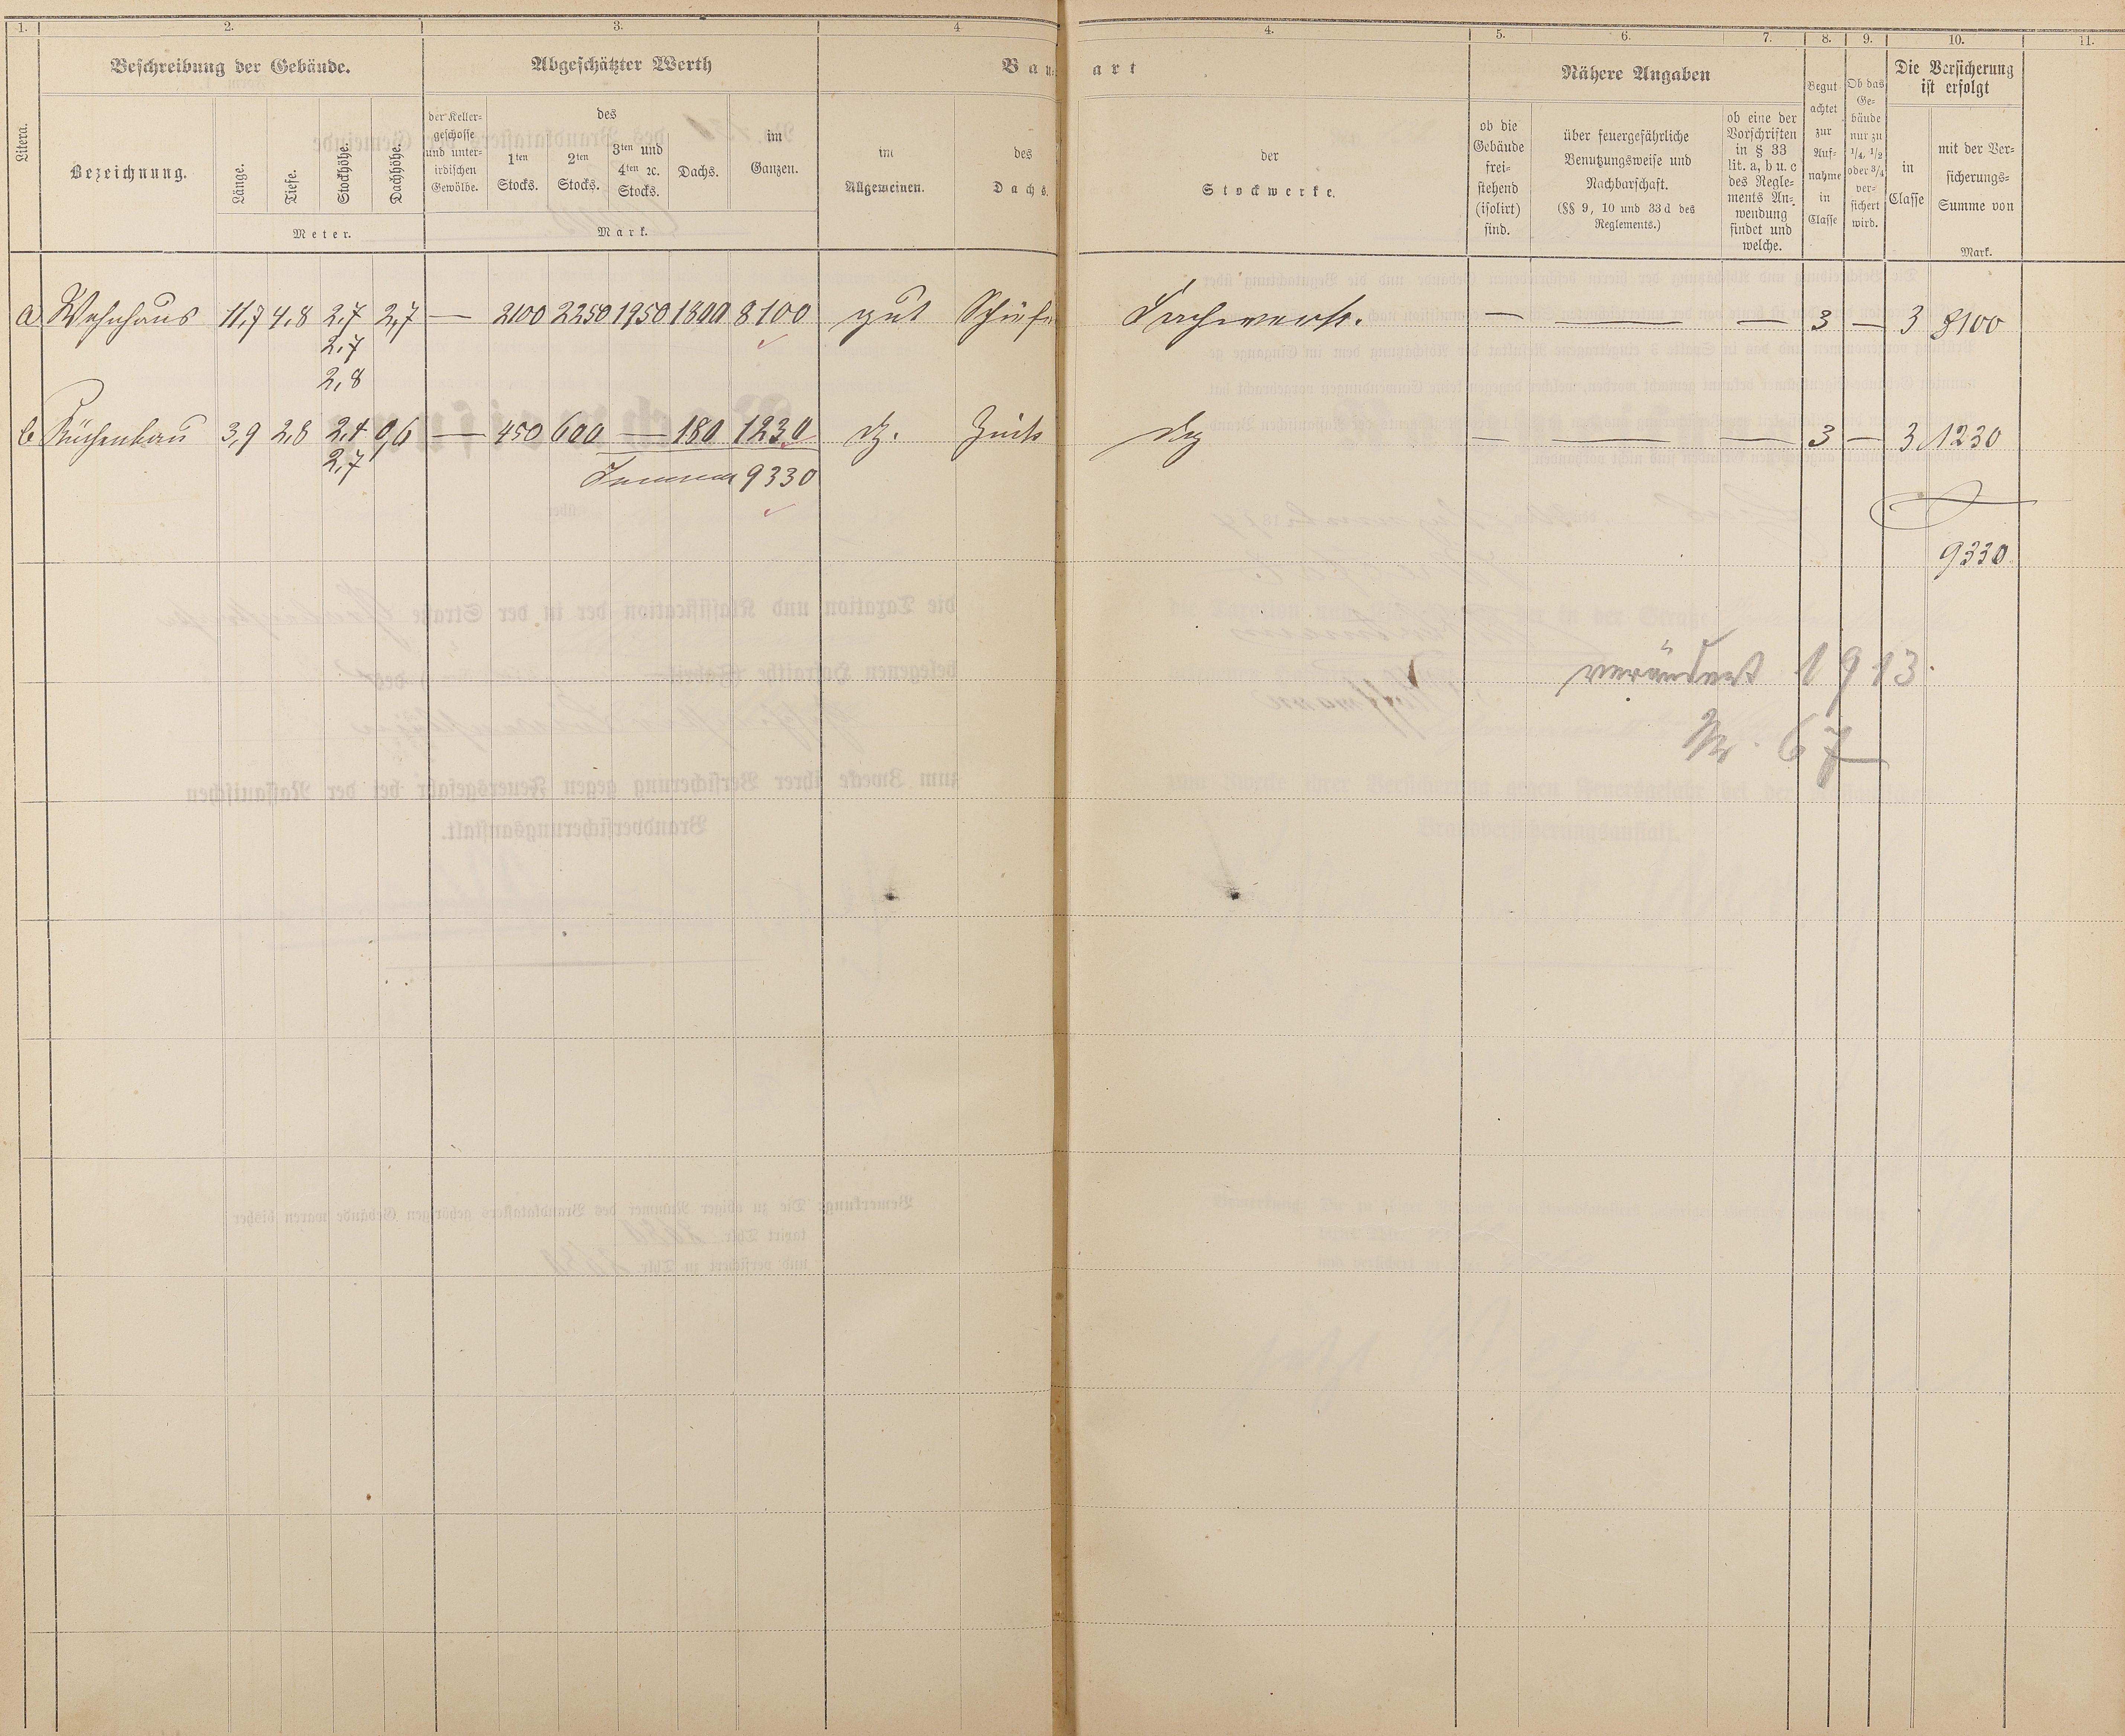 1. 2. 3. 4 4. 5. 6. 7. 8. 9. 10. 11.
Litera.
Beschreibung der Gebäude.
Bezeichnung.
Länge.
Tiefe.
Stockhöhe.
Dachhöhe.
Meter.
Abgeschätzter Werth
der Keller-
geschosse
und unter-
irdischen
Gewölbe.
des
1ten
Stocks.
2ten
Stocks.
3ten und
4ten ec.
Stocks.
Dachs.
im
Ganzen.
Mark.
Bau-
art
im
Allgemeinen.
des
Dachs.
der
Stockwerke.
Nähere Angaben
ob die
Gebäude
frei-
stehend
(isolirt)
sind.
über feuergefährliche
Benutzungsweise und
Nachbarschaft.
(§§ 9, 10 und 33 d des
Reglements.)
ob eine der
Vorschriften
in § 33
lit. a, b u. c
des Regle-
ments An-
wendung
findet und
welche.
Begut-
achtet
zur
Auf-
nahme
in
Classe
Ob das
Ge-
bäude
nur zu
1/4, 1/2
oder 3/4
ver-
sichert
wird.
Die Versicherung
ist erfolgt
in
Classe
mit der Ver-
sicherungs-
Summe von
Mark.
a Wohnhaus 11,7 4,8 2,7 2,7 — 2100 2250 1950 1800 8100 gut Schief Fachwerk. — — — 3 — 3 8100
2,7
2,8
b Küchenbau 3,9 2,8 2,4 0,6 — 450 600 — 180 1230 dg. Zink dg — — — 3 — 3 1230
2,7
Summa 9330
9330
verändert 1913.
Nr. 67